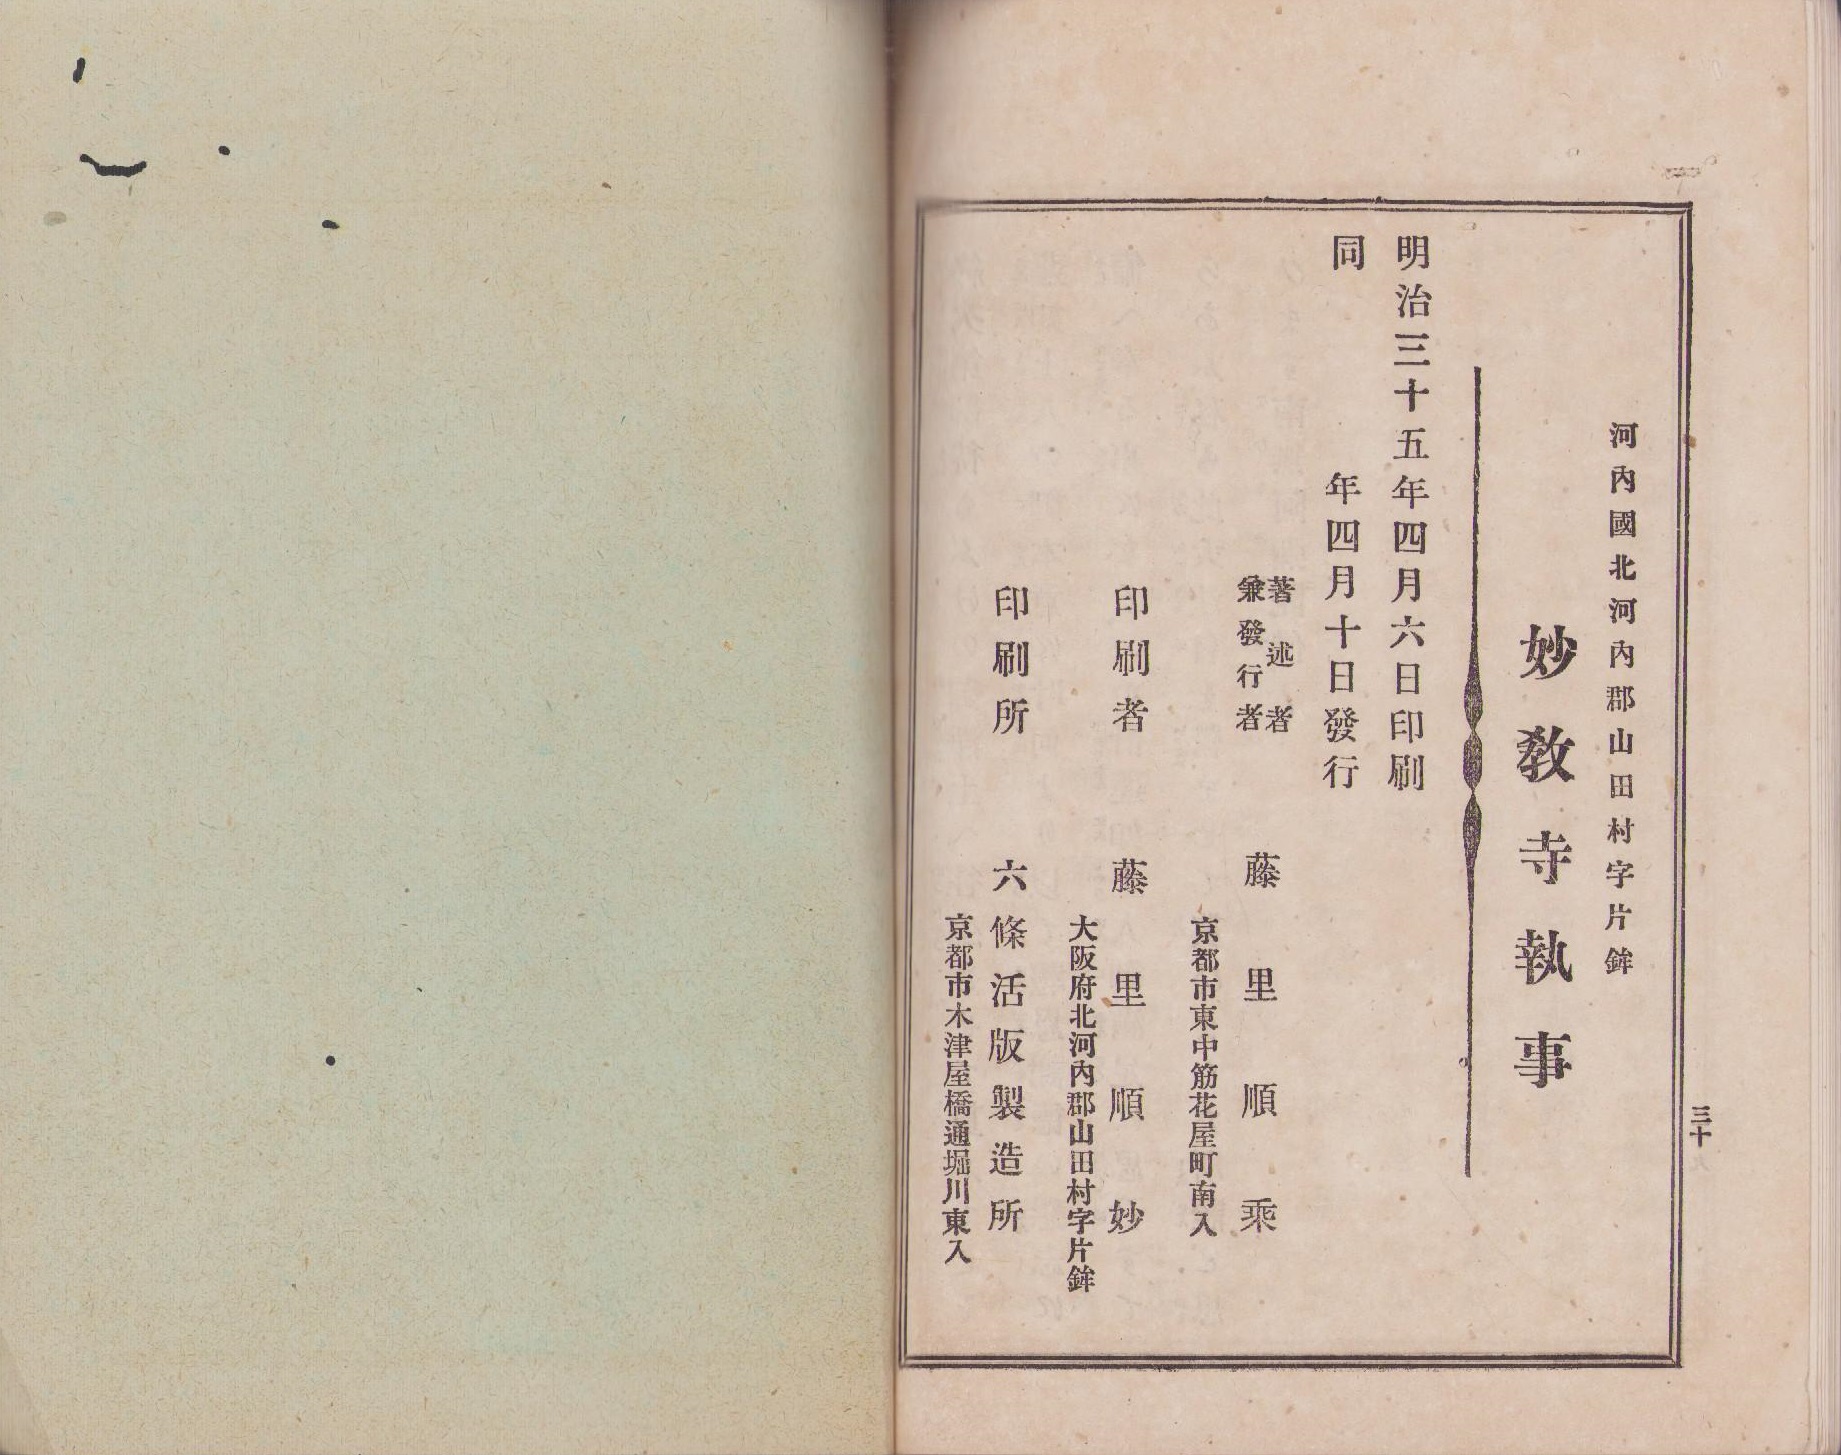 河內國北河內郡山田村字片鉾
妙敎寺執事
明治三十五年四月六日印刷
同年四月十日發行
著述者
兼發行者
藤里順乘
京都市東中筋花屋町南入
印刷者
藤里順妙
大阪府北河內郡山田村字片鉾
印刷所
六條活版製造所
京都市木津屋橋通堀川東入
三十